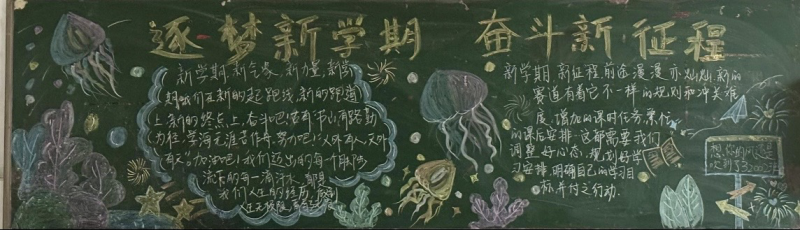 逐梦新学期 奋斗新征程
新学期,新气象,新力量,新梦
想,我们在新的起跑线,新的跑道
上,新的终点上,奋斗吧!书山有路勤
为径,学海无涯苦作舟,努力吧!人外有人,天外
有天,加油吧!我们迈出的每一个
流下的每一滴汗水
我们人生的
新学期,新征程,前途漫漫亦灿灿,新的
赛道有着它不一样的规则和冲关难
度,增加的课时任务,累忙
的课后安排,这都需要我们
调整好心态,规划好学
习安排,明确自己的学习目
标并付之行动.